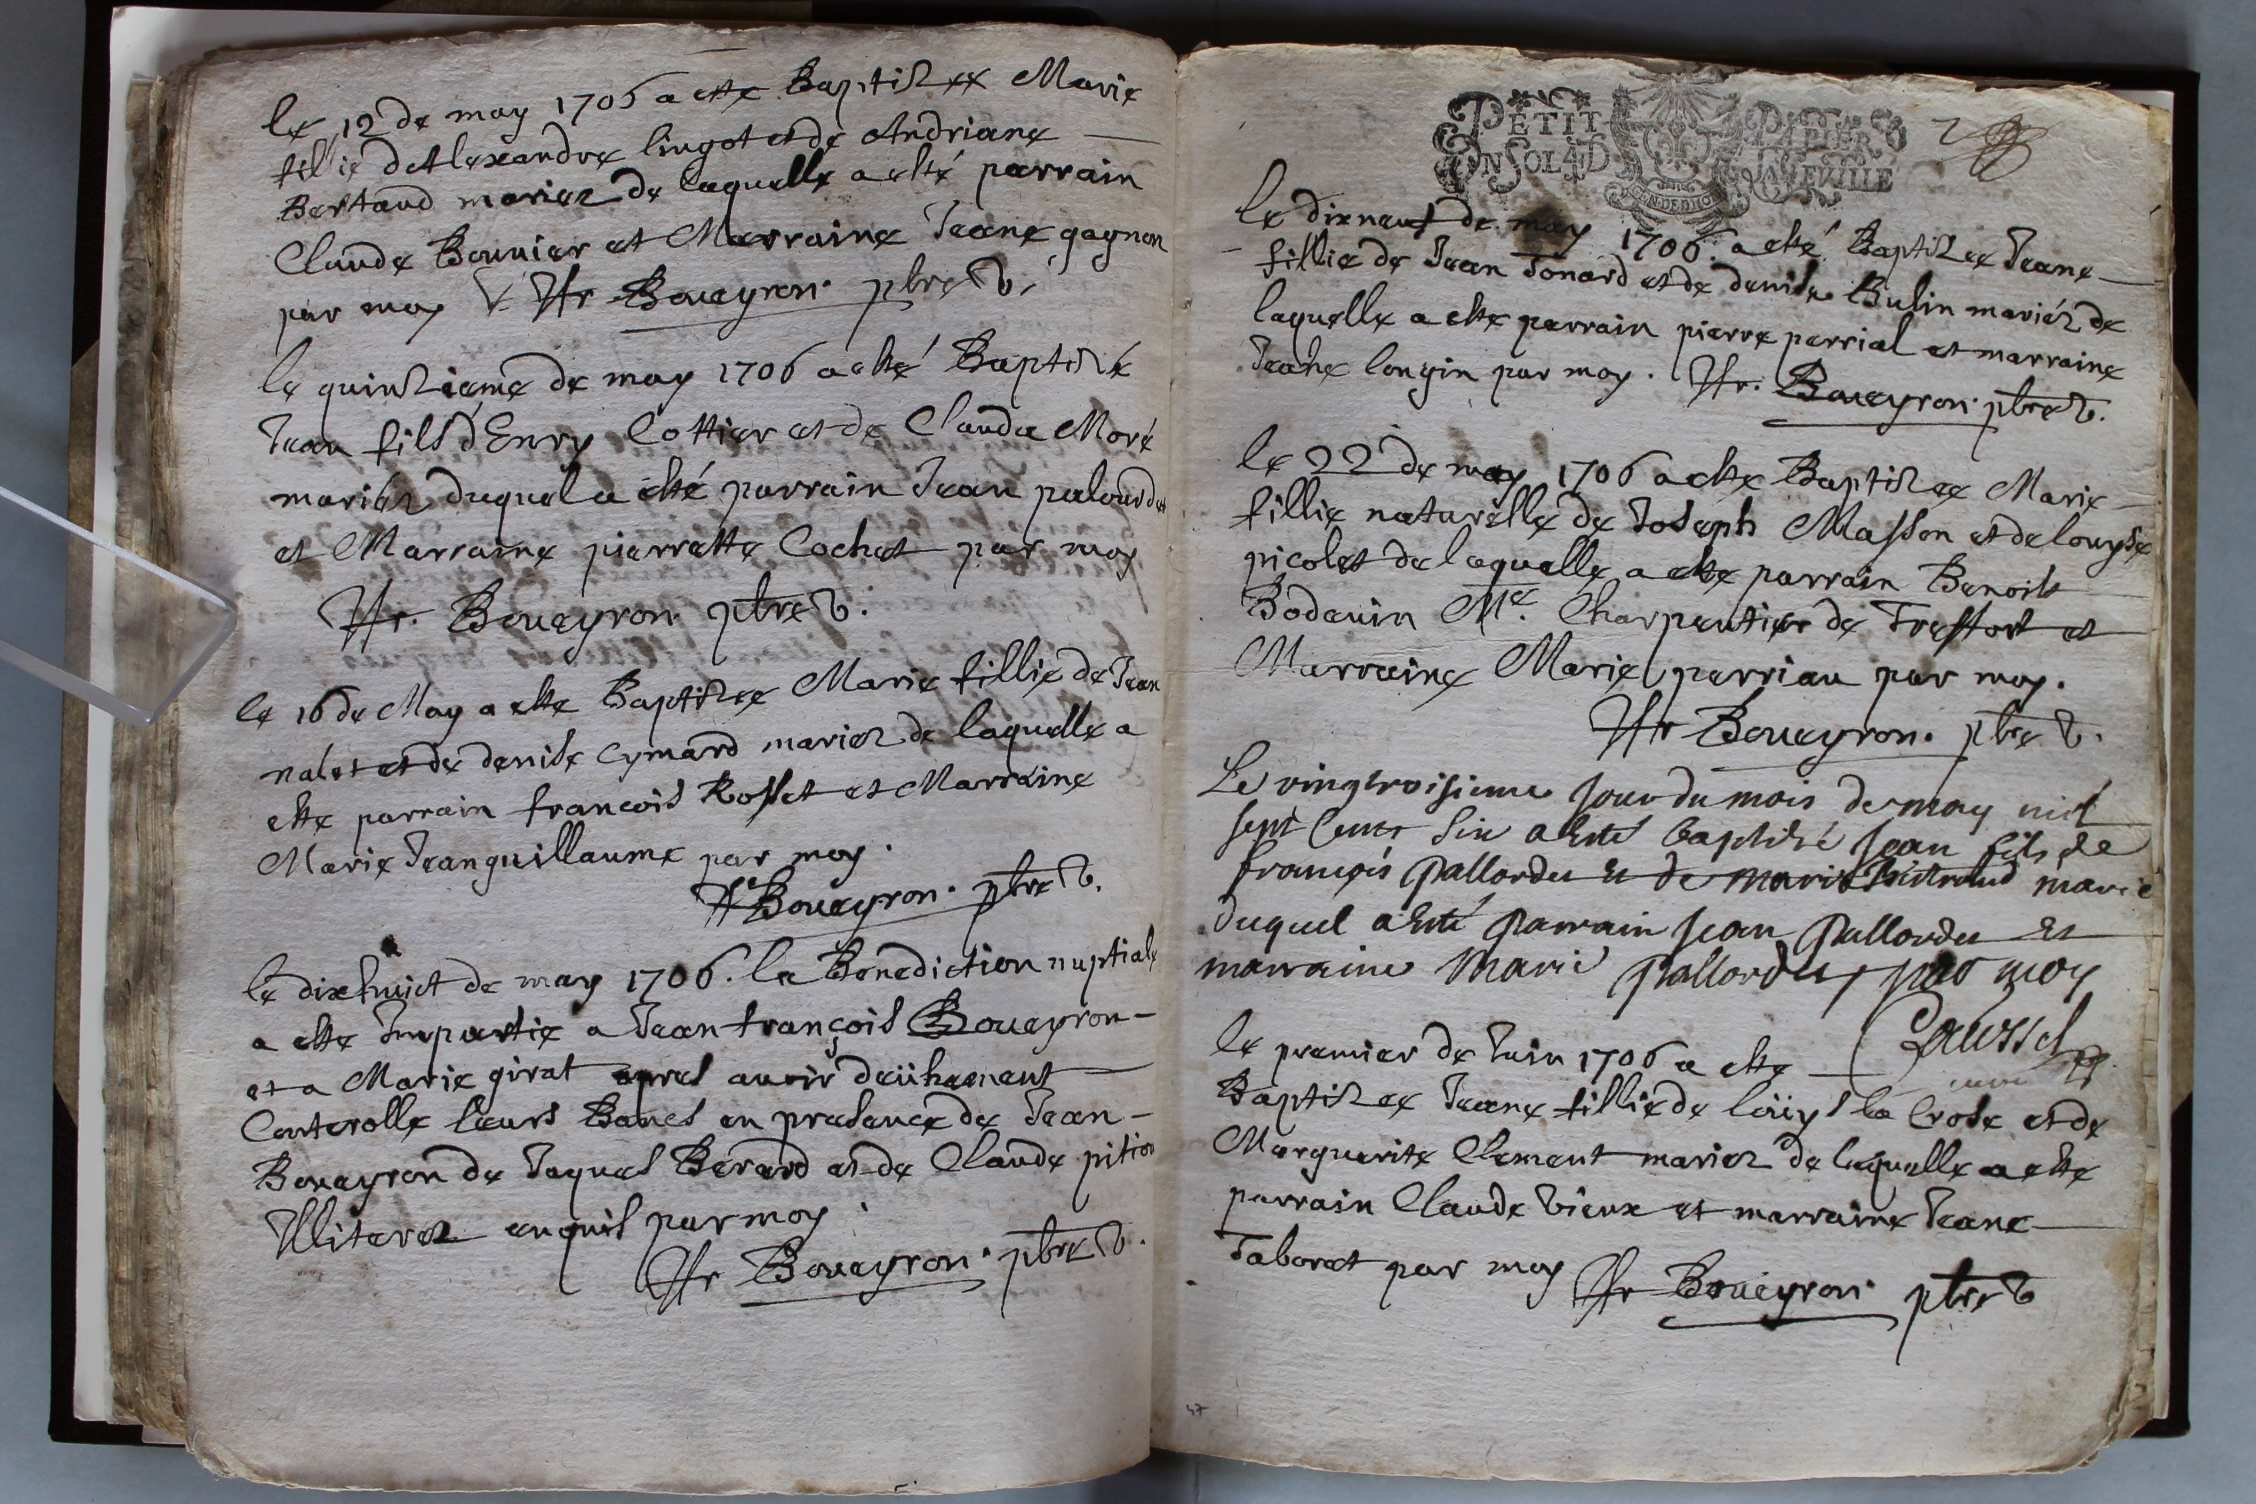 le 12 de may 1706 a este Baptizee Marie
fillie d'Alexandre lingot et de Andriane
Bertaud mariez de laquelle a esté parrain
Claude Bouvier et Marraine Jeane gagnon
par moy Boueyron ptre v.
le quinzieme de may 1706 a esté Baptizé
Jean fils d'Enry Cottier et de Claude Moré
mariez duquel a esté parrain Jean palourdet
et Marraine pierrette Cochet par moy
Boueyron ptre v.
le 16 de May a este Baptizee Marie fillie de Jean
nalet et de denise Cymard mariez de laquelle a
este parrain francois Rosset et Marraine
Marie Jeanguillaume par moy.
Boueyron. ptre v.
le dixhuict de may 1706. la Benediction nuptiale
a este Impartie a Jean françois Boueyron
et a Marie girat apres avoir deühement
Conterolle leurs Bancs en presance de Jean
Boueyron de Jaques Berard et de Claude pition
Illiterez enquis par moy.
Boueyron. ptre v.
PETIT PAPIER
UN SOL 4 D LA FEVILLE
le dixneuf de may 1706. a esté Baptizee Jeane
fillie de Jean Tonard et de denise Bulin mariéz de
laquelle a este parrain pierre perrial et marraine
Jeane longin par moy. Boueyron. ptre v.
le 22 de may 1706 a este Baptizee Marie
fillie naturelle de Joseph Masson et de louyse
picolet de laquelle a este parrain Benoist
Bodevin Me. Charpentier de Treffort et
Marraine Marie perriau par moy.
Boueyron. ptre v.
Le vingtroisieme Jour du mois de may mil
sept Cents Six a Esté baptisé Jean fils de
françois Pallordet Et de marie mariés
duquel a Esté Parrain Jean Pallordet Et
marraine Marie Pallordet, par moy
le premier de Juin 1706 a este
Baptizee Jeane fillie de loüys la Crose et de
Marguerite Clement mariez de laquelle a este
parrain Claude vieux et marraine Jeane
Taboret par moy Boueyron. ptre v
47